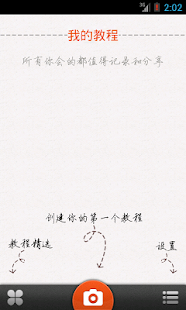 2:02
我的教程
所有你会的都值得记录和分享
创建你的第一个教程
教程精选
设置